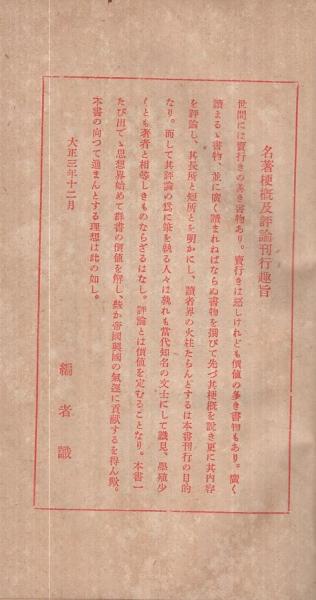 名著梗概及評論刊行趣旨
世間には賣行きの善き書物あり。賣行きは惡しけれども價値の多き書物もあり。廣く
讀まるゝ書物、並に廣く讀まれねばならぬ書物を撰びて先づ其梗概を說き更に其內容
を評論し、其長所と短所とを明かにし、讀者界の火柱たらんとするは本書刊行の目的
なり。而して其評論の爲に筆を執る人々は孰れも當代知名の文士にして識見、學殖少
くとも著者と相等しきものならざるはなし。評論とは價値を定むることなり。本書一
たび出でゝ思想界始めて群書の價値を解し、聊か帝國興國の氣運に貢献するを得ん歟。
本書の向つて進まんとする理想は此の如し。
大正三年十二月
編者識